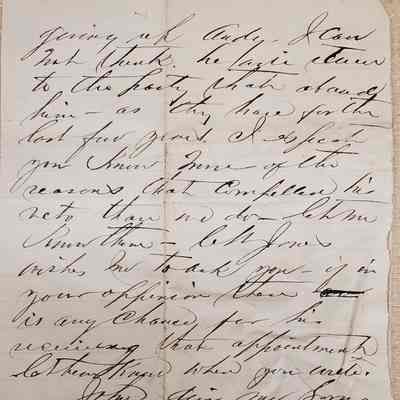 giving up Andy. I can
not think he
to the party that abused
him - as they have for the
last few years I expect
you know more - of the
reasons that compelled his
veto than we do - let me
know them -
wishes me to ask you - if in
your oppinion there
is any chance for his
receiving that appointment
let him know when you write.